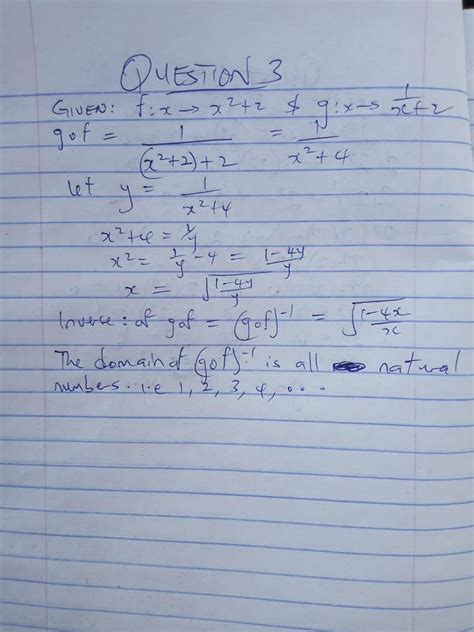 QUESTION 3
GIVEN: f:x→ x²+2 & g:x→ 1/(x+2)
gof = 1/((x²+2)+2) = 1/(x²+4)
let y = 1/(x²+4)
x²+4 = 1/y
x² = 1/y - 4 = (1-4y)/y
x = √((1-4y)/y)
Inverse: of gof = (gof)⁻¹ = √((1-4x)/x)
The domain of (gof)⁻¹ is all natural
numbers. i.e 1, 2, 3, 4, ...